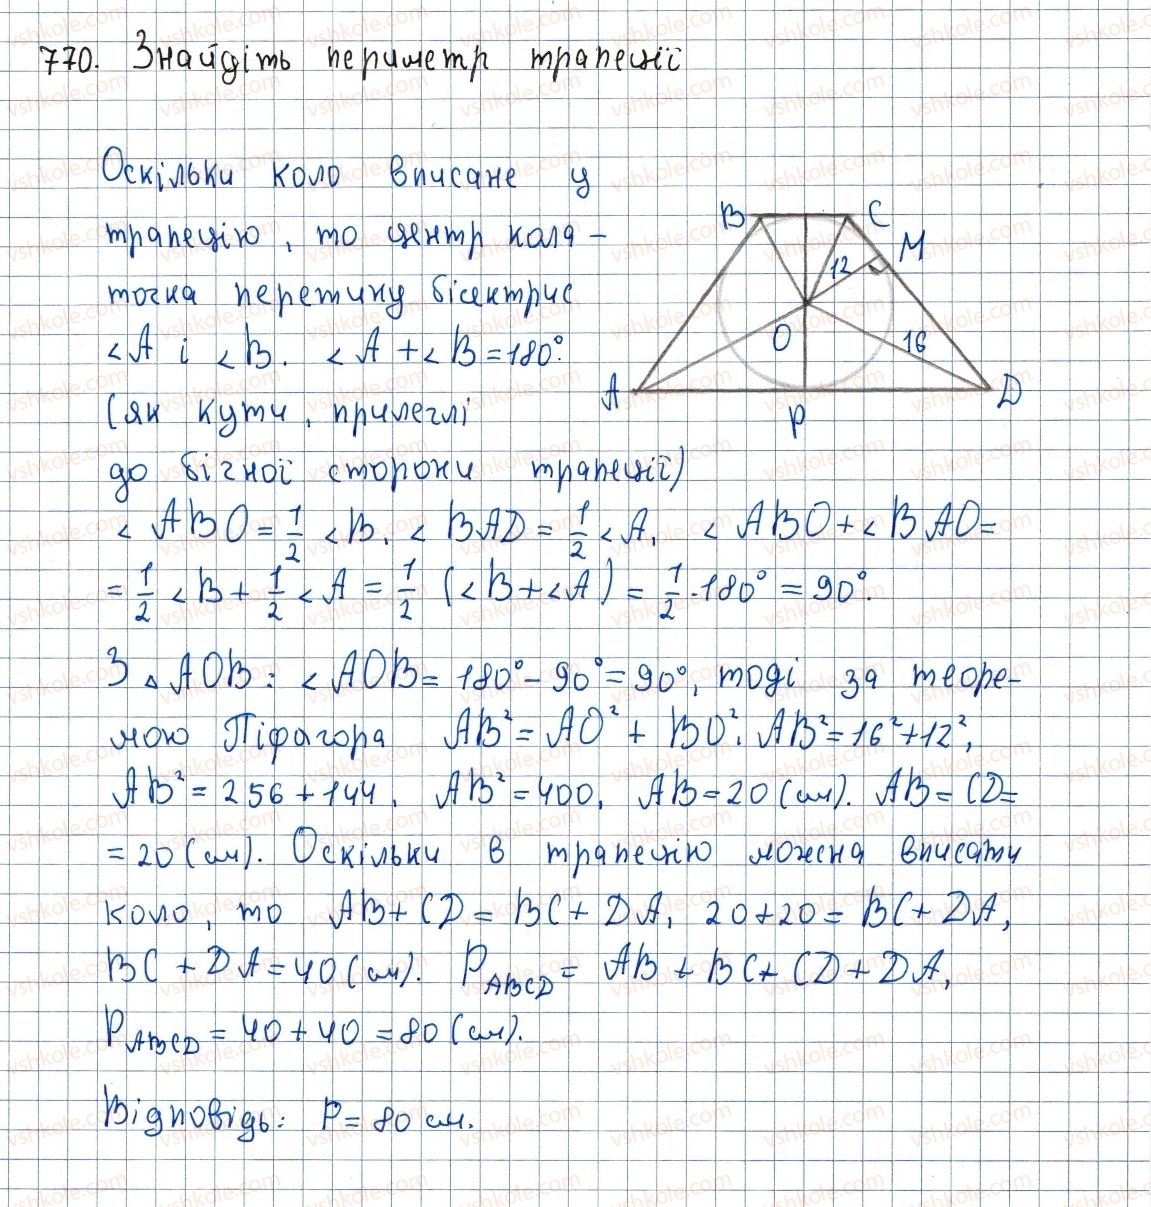 770. Знайдіть периметр трапеції
Оскільки коло вписане у
трапецію, то центр кола –
точка перетину бісектрис
<A і <B. <A + <B = 180°.
(як кути, прилеглі
до бічної сторони трапеції)
B C M 12 O 16 A P D
< ABO = 1/2 <B, < BAD = 1/2 <A, < ABO + < BAO =
= 1/2 <B + 1/2 <A = 1/2 (<B + <A) = 1/2 · 180° = 90°.
З △ AOB: < AOB = 180° – 90° = 90°, тоді за теоре-
мою Піфагора AB² = AO² + BO². AB² = 16² + 12²,
AB² = 256 + 144, AB² = 400, AB = 20 (см). AB = CD =
= 20 (см). Оскільки в трапецію можна вписати
коло, то AB + CD = BC + DA, 20 + 20 = BC + DA,
BC + DA = 40 (см). P ABCD = AB + BC + CD + DA,
P ABCD = 40 + 40 = 80 (см).
Відповідь: P = 80 см.
vshkole.com